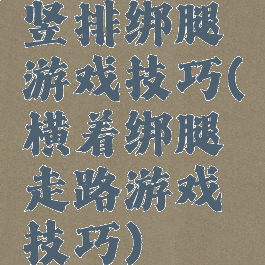 竖排绑腿
游戏技巧(
横着绑腿
走路游戏
技巧)